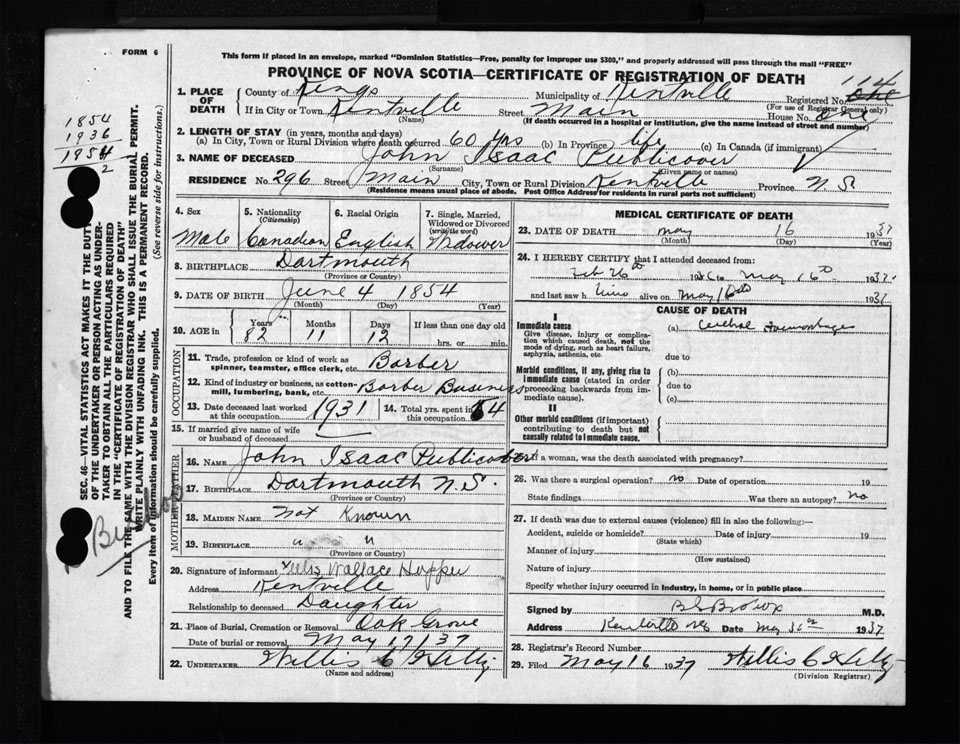 FORM 6
This form if placed in an envelope, marked "Dominion Statistics—Free, penalty for improper use $300," and properly addressed will pass through the mail "FREE"
PROVINCE OF NOVA SCOTIA—CERTIFICATE OF REGISTRATION OF DEATH
1. PLACE OF DEATH
County of Kings Municipality of Kentville Registered No. 114
(For use of Registrar General only)
If in City or Town Kentville Street Main House No. one
(Name) (If death occurred in a hospital or institution, give the name instead of street and number)
2. LENGTH OF STAY (in years, months and days)
(a) In City, Town or Rural Division where death occurred 60 yrs (b) In Province life (c) In Canada (if immigrant)
3. NAME OF DECEASED John Isaac Publicover
(Surname) (Given name or names)
RESIDENCE No. 296 Street Main City, Town or Rural Division Kentville Province N S
(Residence means usual place of abode. Post Office Address for residents in rural parts not sufficient)
4. Sex
Male
5. Nationality
(Citizenship)
Canadian
6. Racial Origin
English
7. Single, Married, Widowed or Divorced
(write the word)
Widower
8. BIRTHPLACE Dartmouth
(Province or Country)
9. DATE OF BIRTH June 4 1854
(Month) (Day) (Year)
10. AGE in
Years Months Days If less than one day old
82 11 12 hrs. or min.
OCCUPATION
11. Trade, profession or kind of work as spinner, teamster, office clerk, etc. Barber
12. Kind of industry or business, as cotton-mill, lumbering, bank, etc. Barber Business
13. Date deceased last worked at this occupation 1931
14. Total yrs. spent in this occupation 54
15. If married give name of wife or husband of deceased
FATHER
16. NAME John Isaac Publicover
17. BIRTHPLACE Dartmouth N.S.
(Province or Country)
MOTHER
18. MAIDEN NAME Not Known
19. BIRTHPLACE " "
(Province or Country)
20. Signature of informant Wallace
Address Kentville
Relationship to deceased Daughter
21. Place of Burial, Cremation or Removal Oak Grove
Date of burial or removal May 17/37
22. UNDERTAKER Willis C
(Name and address)
MEDICAL CERTIFICATE OF DEATH
23. DATE OF DEATH May 16 1937
(Month) (Day) (Year)
24. I HEREBY CERTIFY that I attended deceased from
Feb 26th 1936 to May 16th 1937.
and last saw him alive on May 16th 1937
CAUSE OF DEATH
I
Immediate cause
Give disease, injury or complication which caused death, not the mode of dying, such as heart failure, asphyxia, asthenia, etc.
(a) Cerebral Haemorrhage
due to
Morbid conditions, if any, giving rise to immediate cause (stated in order proceeding backwards from immediate cause).
(b)
due to
(c)
II
Other morbid conditions (if important) contributing to death but not causally related to immediate cause.
25. If a woman, was the death associated with pregnancy?
26. Was there a surgical operation? no Date of operation 19
State findings Was there an autopsy? no
27. If death was due to external causes (violence) fill in also the following:—
Accident, suicide or homicide? Date of injury 19
(State which)
Manner of injury
(How sustained)
Nature of injury
Specify whether injury occurred in industry, in home, or in public place
Signed by M.D.
Address Kentville NS Date May 1937
28. Registrar's Record Number
29. Filed May 16 1937 Willis C
(Division Registrar)
1854
1936
1954
2
SEC. 46—VITAL STATISTICS ACT MAKES IT THE DUTY
OF THE UNDERTAKER OR PERSON ACTING AS UNDER-
TAKER TO OBTAIN ALL THE PARTICULARS REQUIRED
IN THE "CERTIFICATE OF REGISTRATION OF DEATH"
AND TO FILE THE SAME WITH THE DIVISION REGISTRAR WHO SHALL ISSUE THE BURIAL PERMIT.
WRITE PLAINLY WITH UNFADING INK. THIS IS A PERMANENT RECORD.
Every item of information should be carefully supplied. (See reverse side for instructions.)